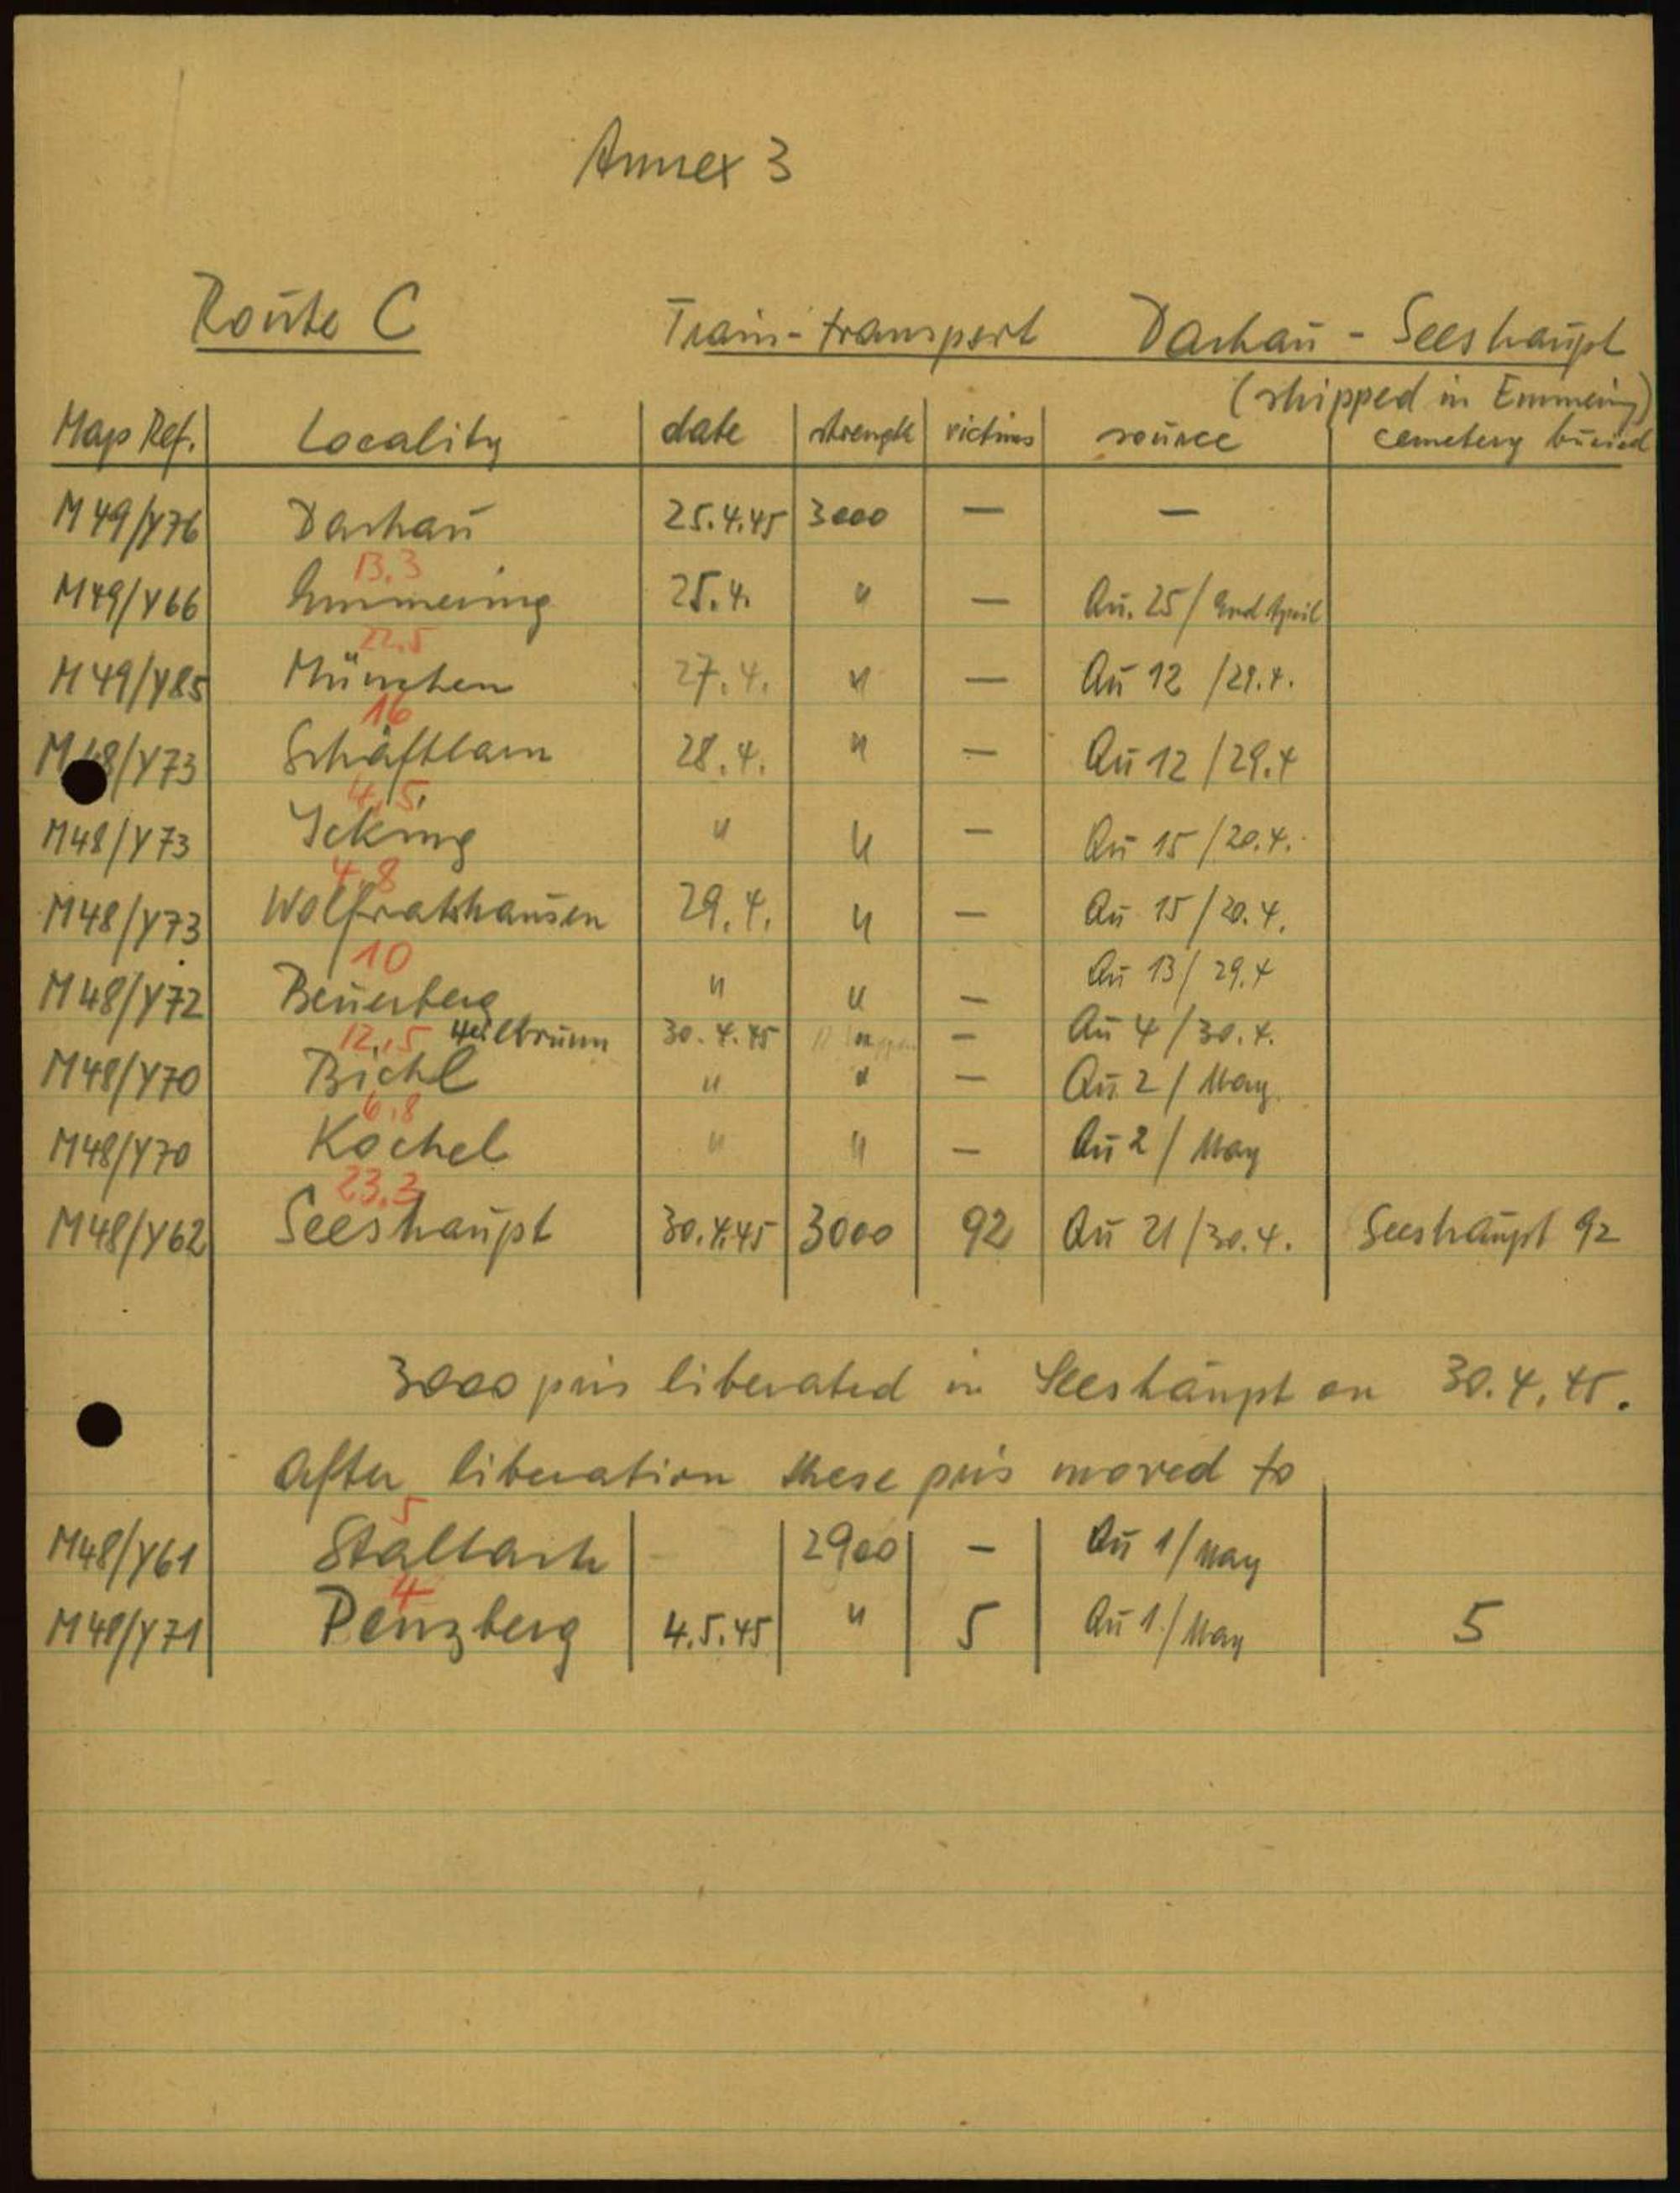 Annex 3
Route C Train-transport Dachau - Seeshaupt
(shipped in Emmering)
Map Ref. Locality date strength victims source cemetery buried
M49/Y76 Dachau 25.4.45 3000 — —
13,3
M49/Y66 Emmering 25.4. " — Qu. 25/ End April
22,5
M49/Y85 München 27.4. " — Qu 12 /29.4.
16
M48/Y73 Schäftlarn 28.4. " — Qu 12 /29.4
4,5
M48/Y73 Icking " " — Qu 15 /20.4.
4,8
M48/Y73 Wolfratshausen 29.4. " — Qu 15 /20.4.
10
M48/Y72 Beuerberg " " — Qu 13/ 29.4
12,5 Heilbrunn 30.4.45 " — Qu 4 /30.4.
M48/Y70 Bichl " " — Qu 2 / May.
6,8
M48/Y70 Kochel " " — Qu 2 / May
23,3
M48/Y62 Seeshaupt 30.4.45 3000 92 Qu 21/30.4. Seeshaupt 92
3000 pris liberated in Seeshaupt on 30.4.45.
After liberation these pris moved to
5
M48/Y61 Staltach 2900 - Qu 1/May
4
M48/Y71 Penzberg 4.5.45 " 5 Qu 1/May 5